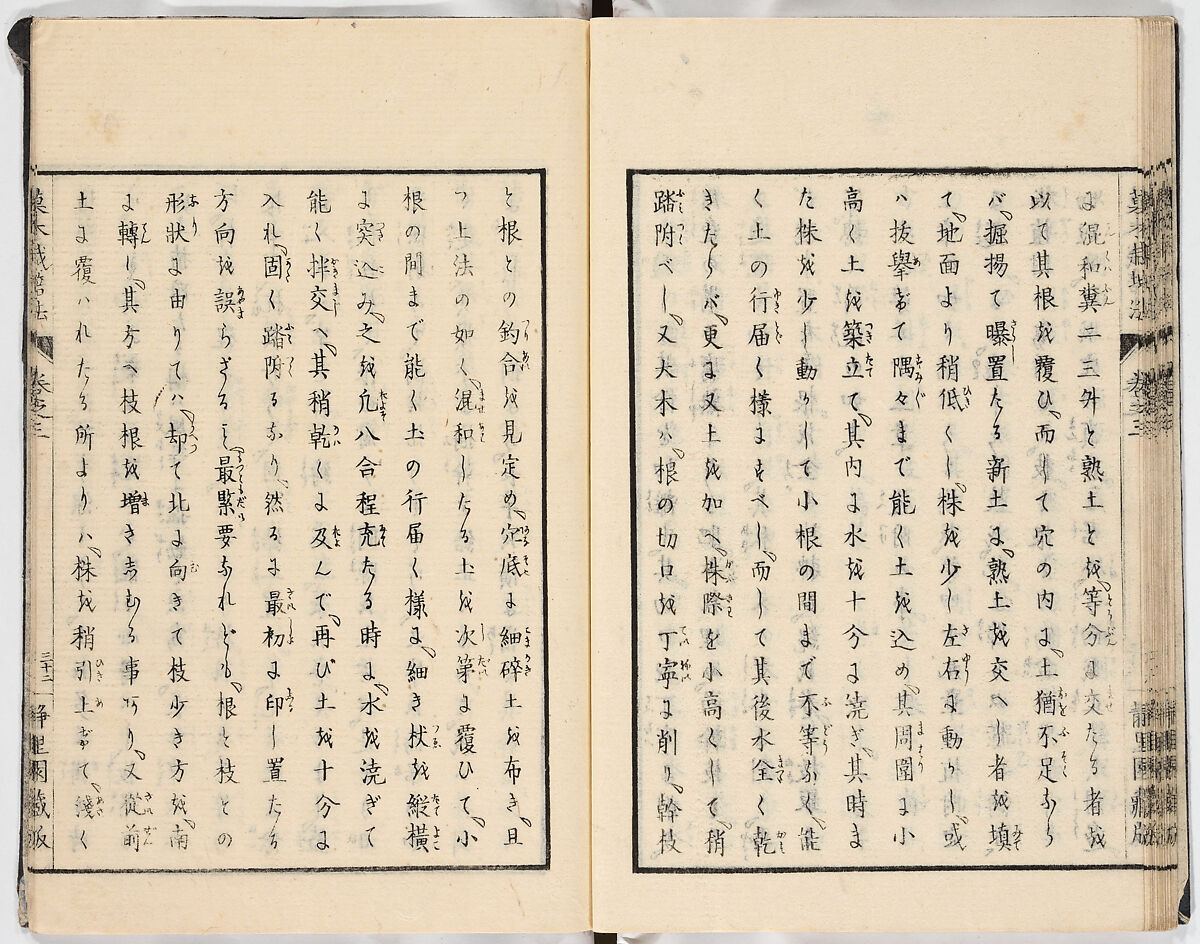 に混和糞二三舛と熟土とを、等分に交たる者を
以て其根を覆ひ、而して穴の内に、土猶不足なら
バ、掘揚て曝置たる新土に、熟土を交へし者を填
て、地面より稍低くし、株を少し左右に動かし、或
ハ抜擧げて隅々まで能く土を込め、其周圍に小
高く土を築立て、其内に水を十分に澆ぎ、其時ま
た株を少し動かして小根の間まで不等なく、能
く土の行届く樣にすべし、而して其後水全く乾
きたらバ、更に又土を加へ、株際を小高くして、稍
踏附べし、又大木ハ、根の切口を丁寧に削り、幹枝
菓木栽培法 卷之三 靜里園藏版
と根との釣合を見定め、穴底に細碎土を布き、且
つ上法の如く、混和したる土を次第に覆ひて、小
根の間まで能く土の行届く樣に、細き杖を縱横
に突込み、之を凢八合程充たる時に、水を澆ぎて
能く拌交へ、其稍乾くに及んで、再び土を十分に
入れ、固く踏附るなり、然るに最初に印し置たる
方向を誤らざること、最緊要なれども、根と枝との
形狀に由りてハ、却て北に向きて枝少き方を、南
に轉し、其方へ枝根を増さしむる事あり、又從前
土に覆ハれたる所よりハ、株を稍引上げて、淺く
菓木栽培法 卷之三 三十二 靜里園藏版